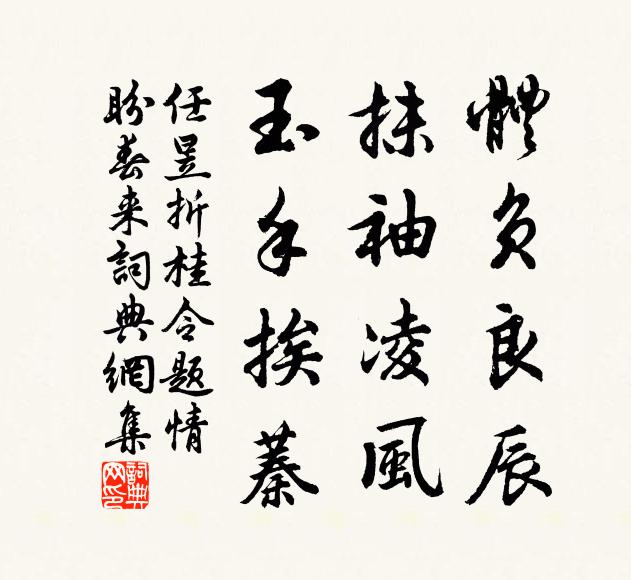 體負良辰
抹袖凌風
玉手挨蓁
任昱折桂令题情
盼春来詞典網集
詞典网印